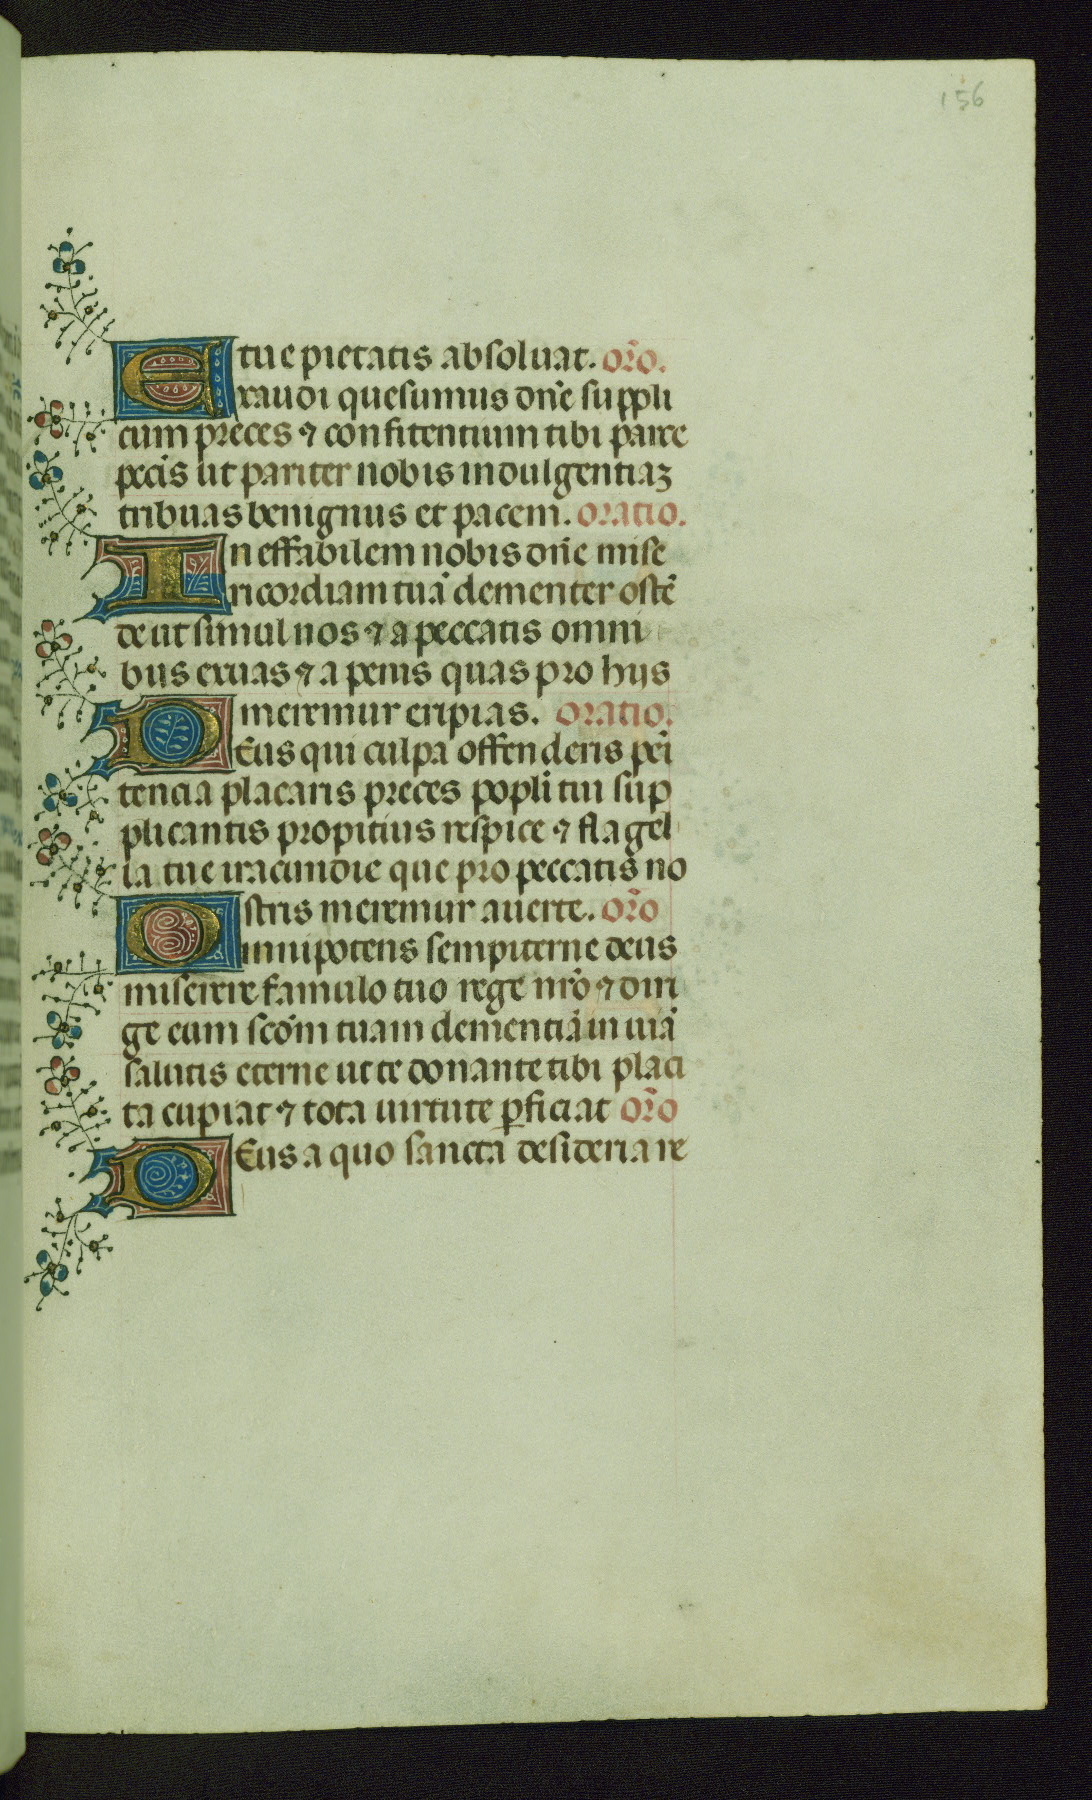 156
tue pietatis absoluat. or̄o.
Exaudi quesumus dn̄e suppli
cum preces ⁊ confitentium tibi parce
pecc̄is ut pariter nobis indulgentiaꝫ
tribuas benignus et pacem. oratio.
Ineffabilem nobis dn̄e mise
ricordiam tuā clementer ostē
de ut simul nos ⁊ a peccatis omni
bus exuas ⁊ a penis quas pro hijs
meremur eripias. oratio.
Deus qui culpa offenderis peī
tencia placaris preces popli tui sup
plicantis propitius respice ⁊ flagel
la tue iracundie que pro peccatis no
stris meremur auerte. or̄o
Omnipotens sempiterne deus
miserere famulo tuo rege nr̄o ⁊ diri
ge eum scd̄m tuam clementiā in uiā
salutis eterne ut te donante tibi placi
ta cupiat ⁊ tota uirtute ꝑficiat or̄o
Deus a quo sancta desideria re